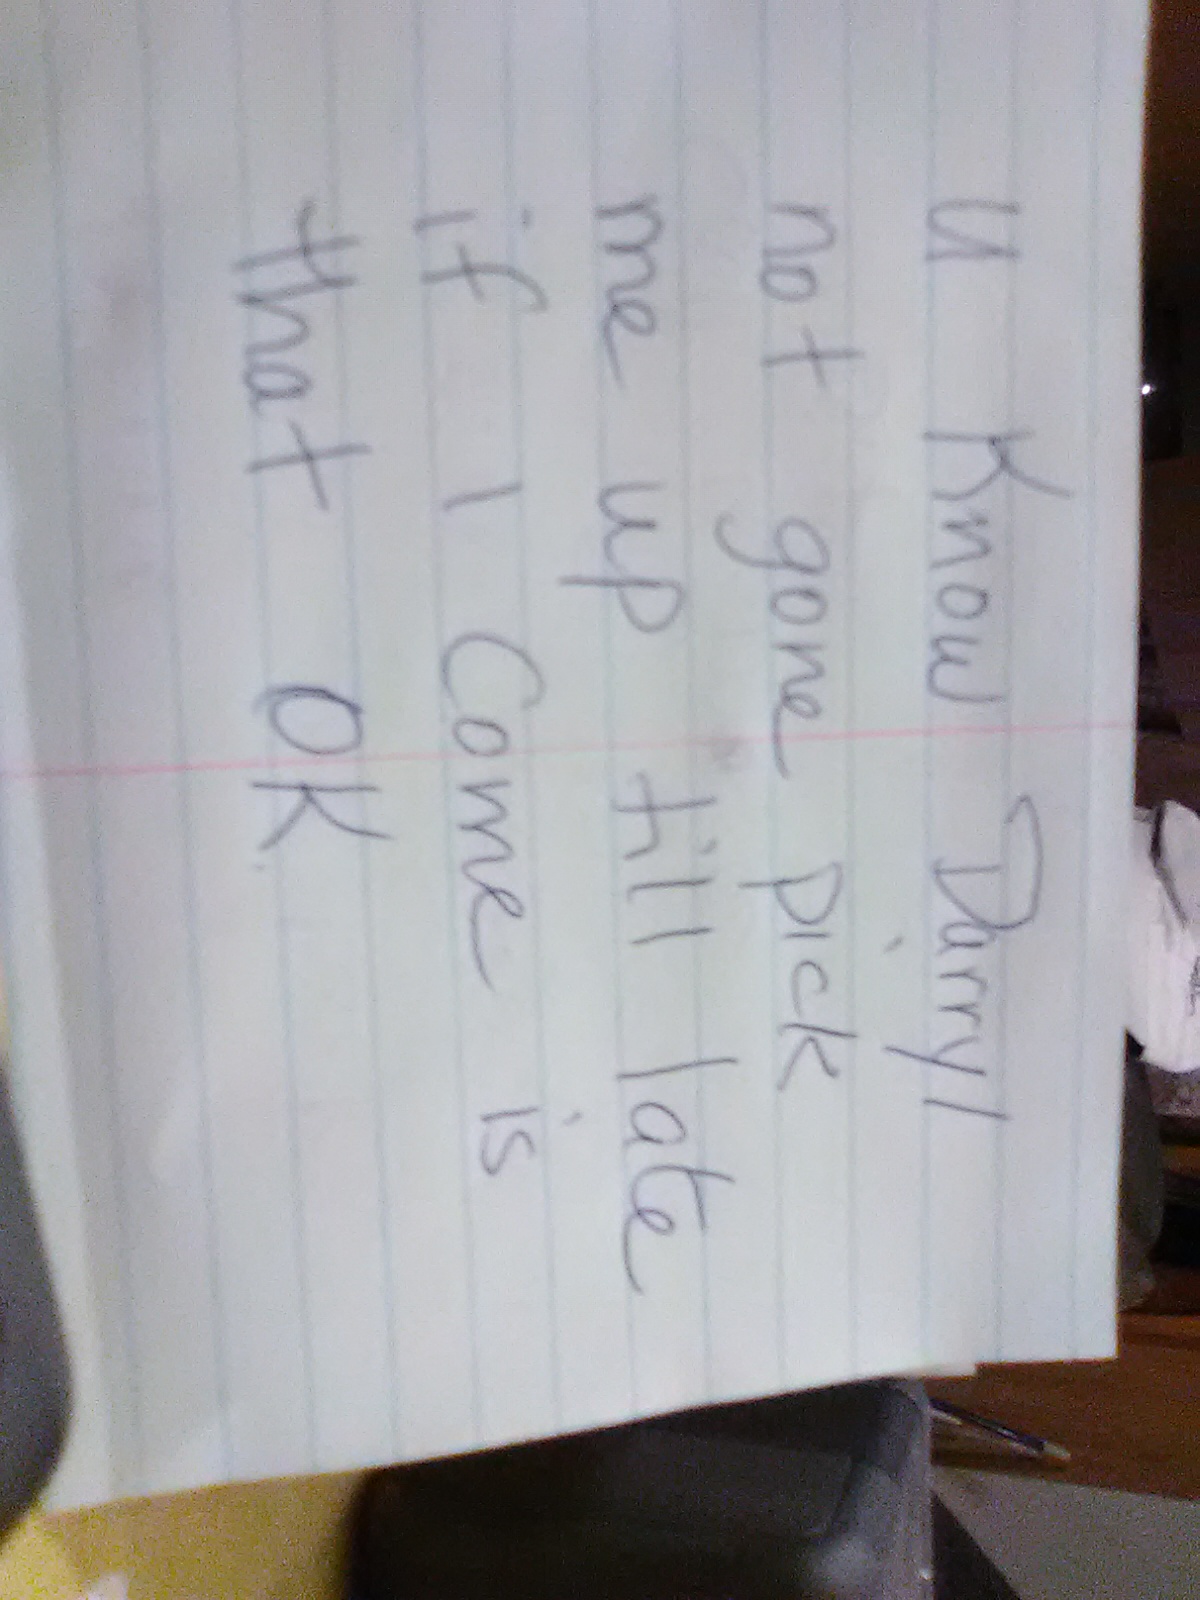 U Know Darryl
not gone pick
me up till late
if I Come is
that OK